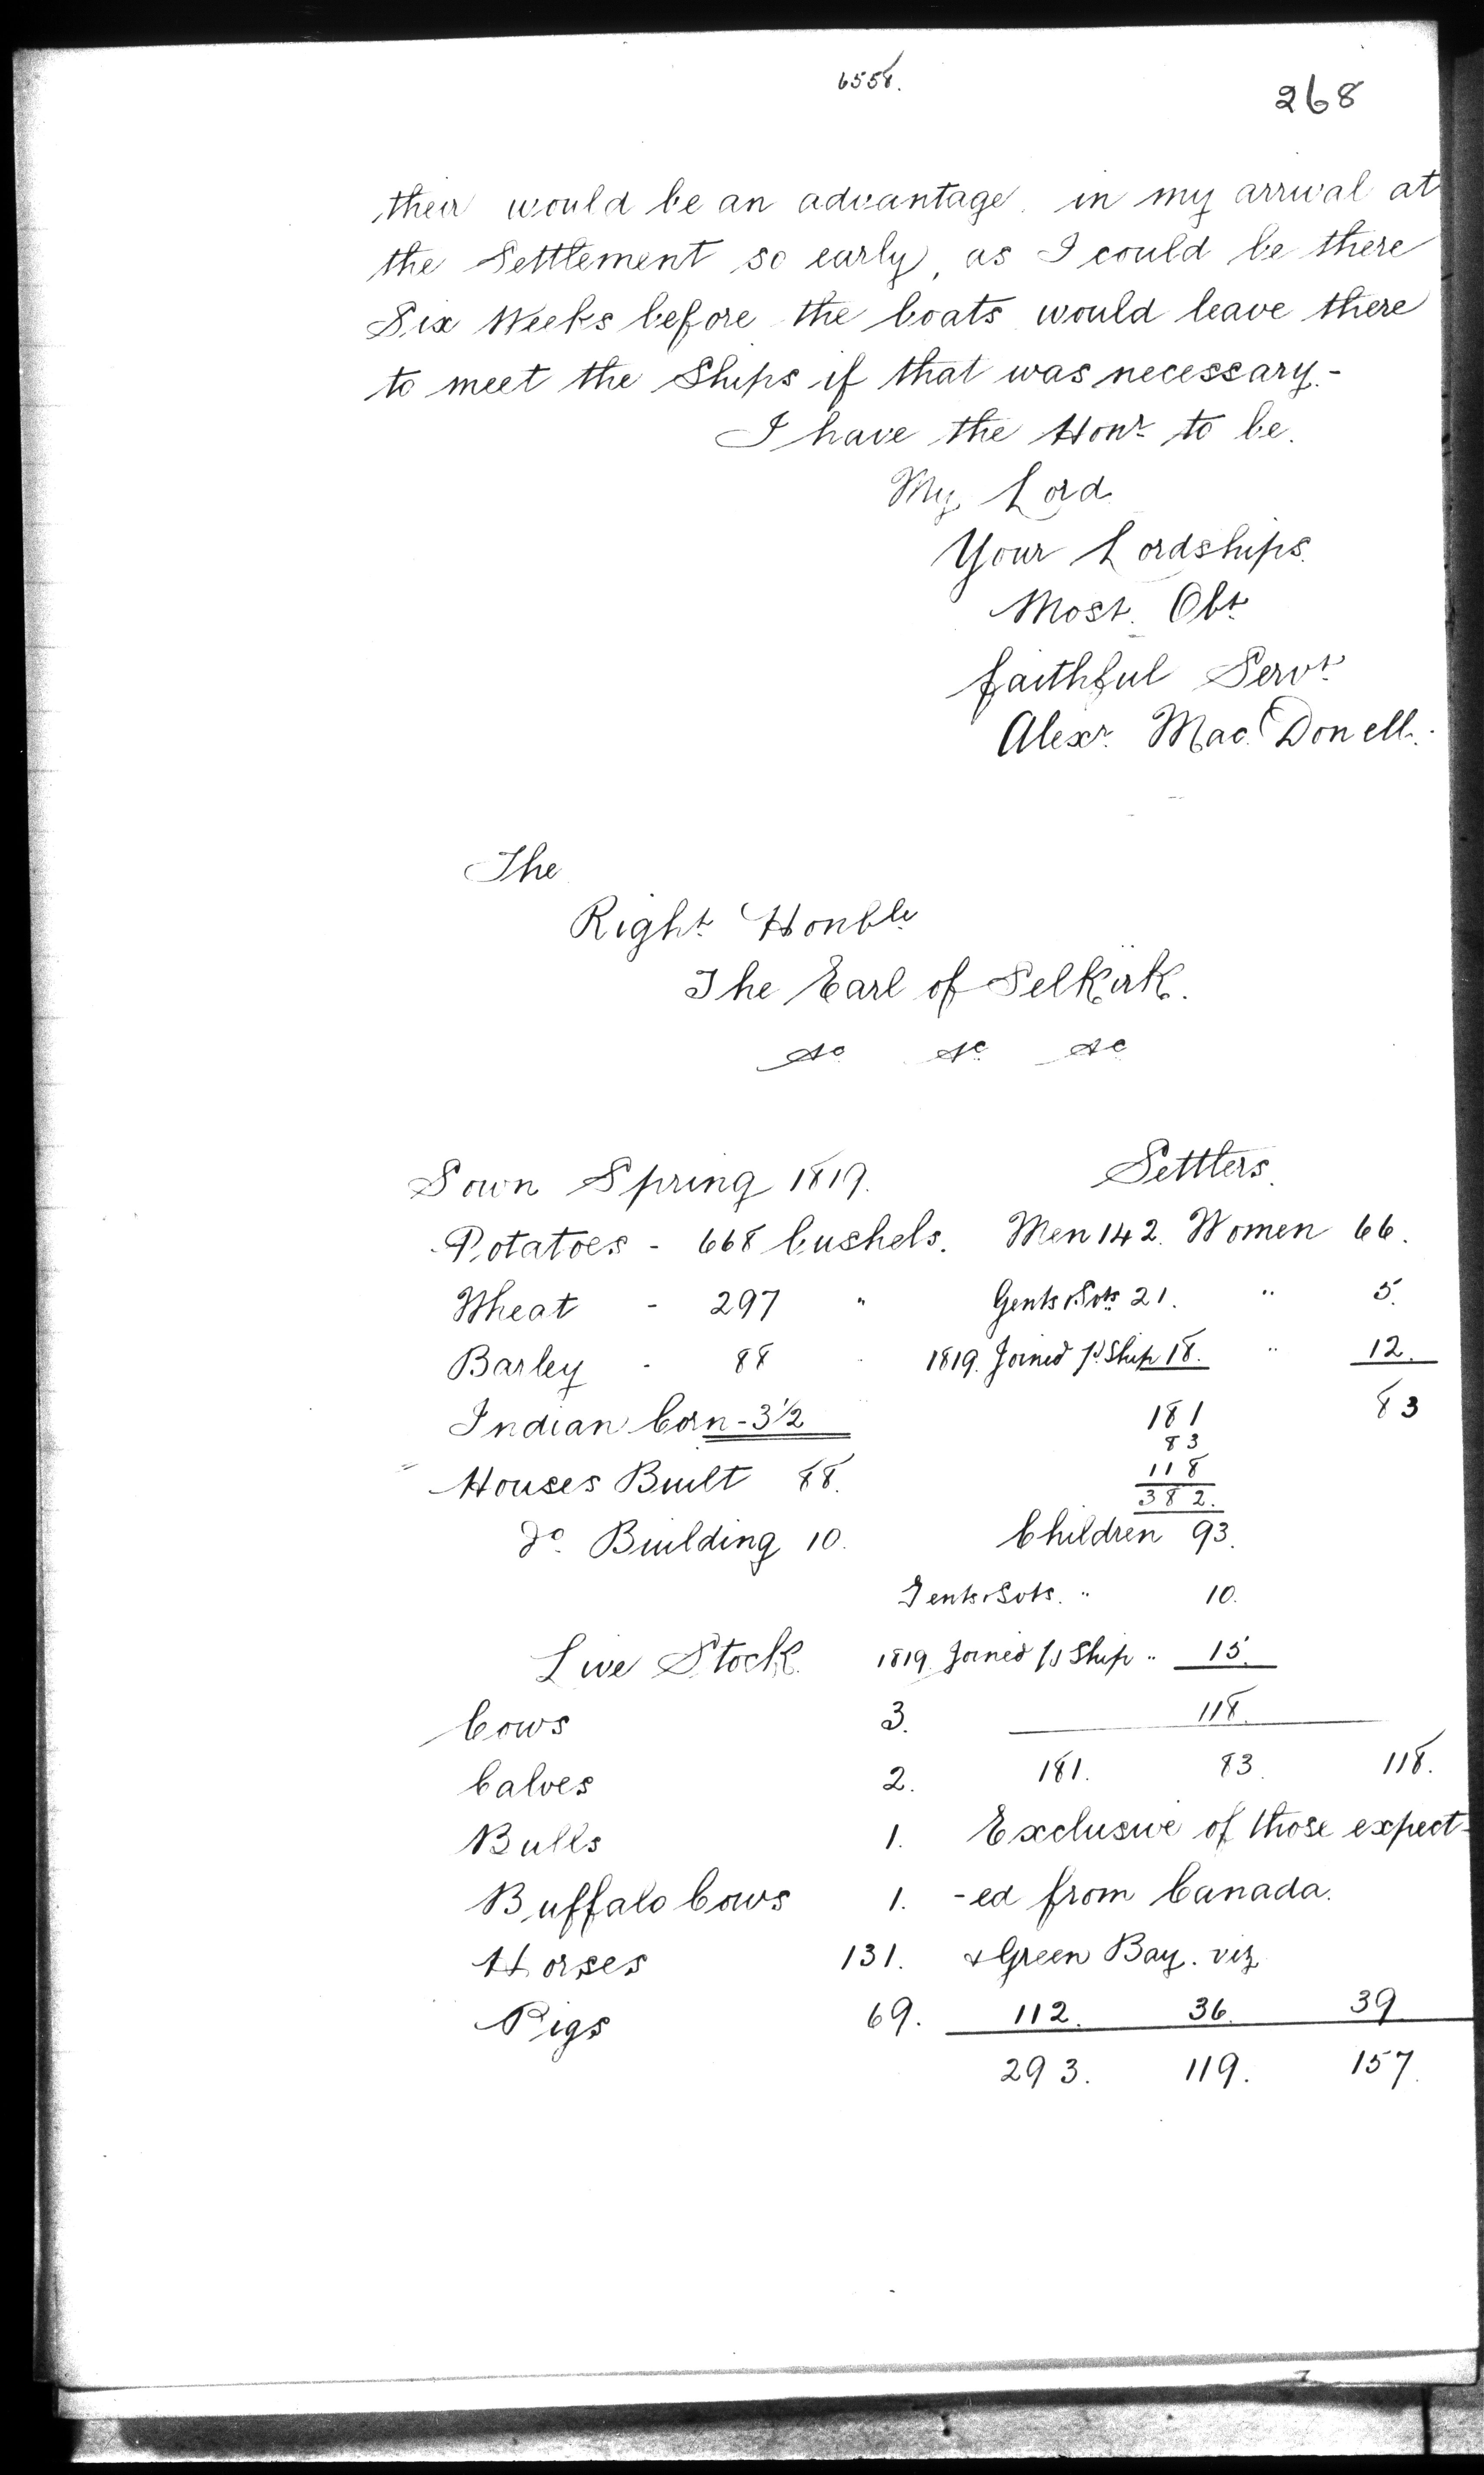 6558.
268
their would be an advantage in my arrival at
the Settlement so early, as I could be there
Six Weeks before the boats would leave there
to meet the Ships if that was necessary.-
I have the Honr to be.
My Lord
Your Lordships.
Most. Obt
faithful Servt
Alexr. Mac.Donell.
The
Right Honble
The Earl of Selkirk.
&c &c &c
Sown Spring 1819.
Potatoes - 668 bushels.
Wheat - 297 "
Barley - 88
Indian Corn - 3 1/2
Houses Built 88.
Do. Building 10.
Live Stock
Cows 3.
Calves 2.
Bulls 1.
Buffalo Cows 1.
Horses 131.
Pigs 69.
Settlers.
Men 142. Women 66.
Gents 21. " 5.
1819. Joined Ship 18. " 12.
181 83
83
118
382.
Children 93.
Gents " 10.
1819. Joined Ship " 15.
118.
181. 83. 118.
Exclusive of those expect-
-ed from Canada.
& Green Bay. viz
112. 36. 39
293. 119. 157.